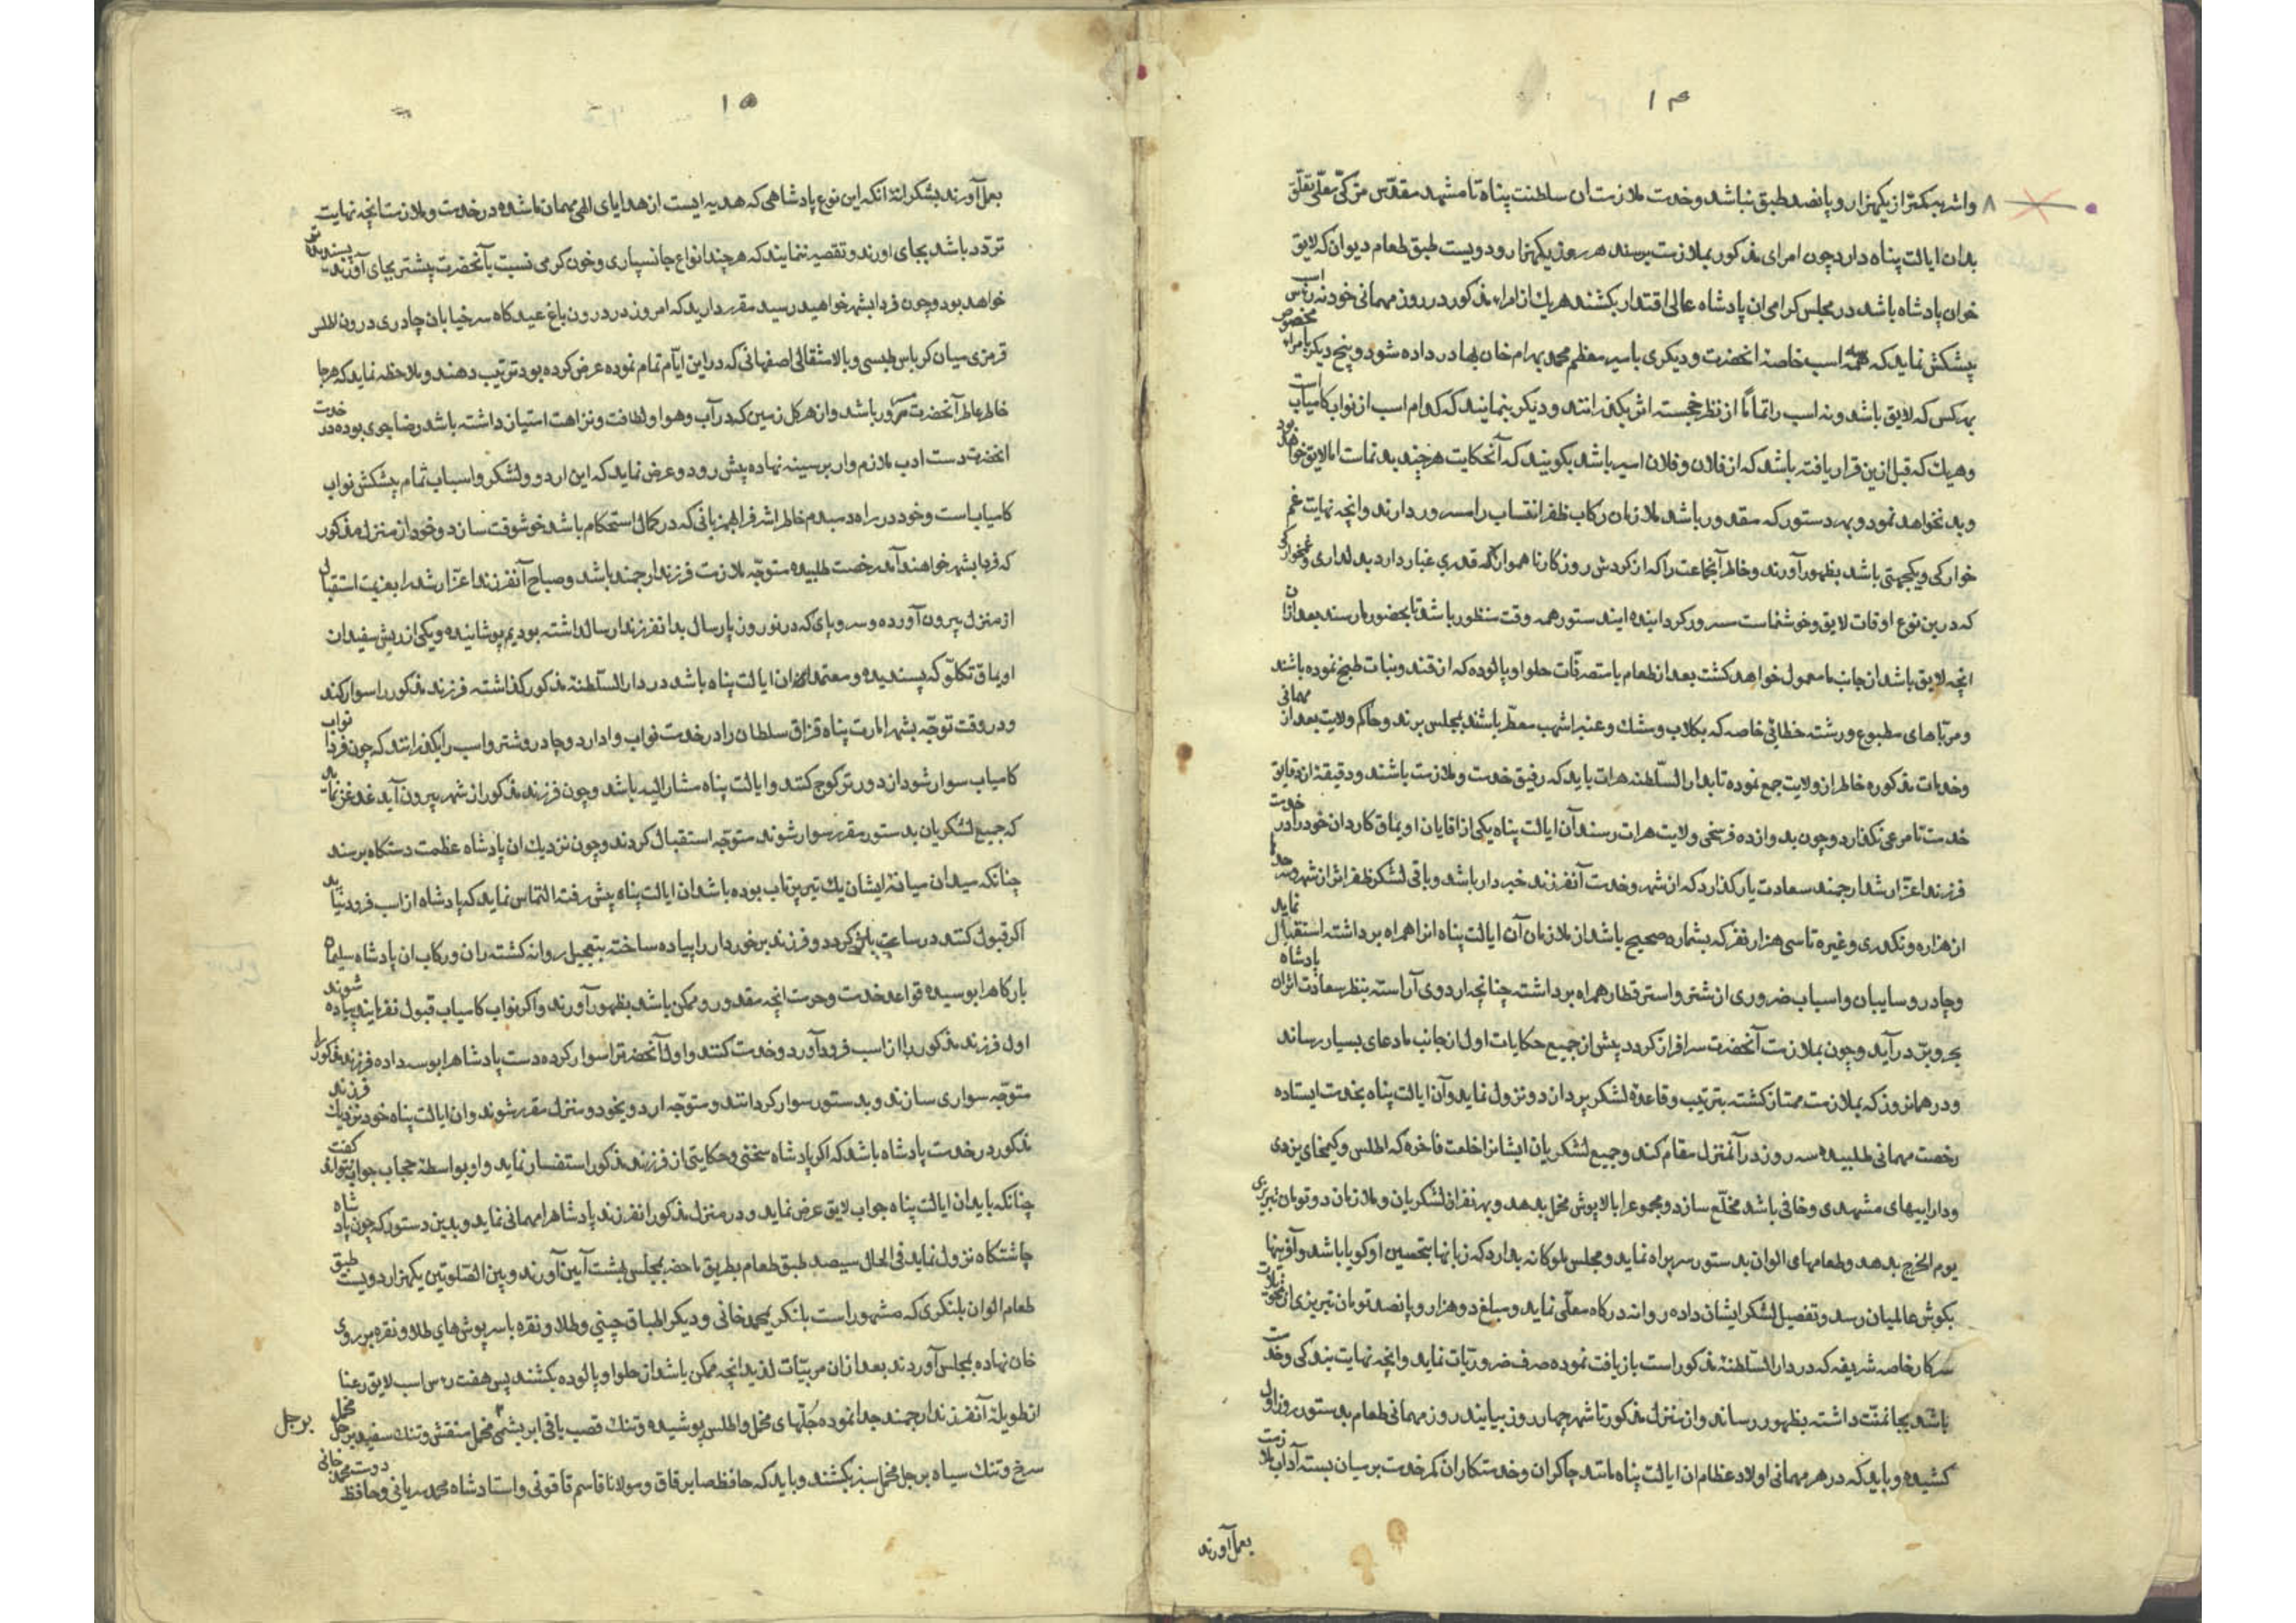 ۱۴
واشربه کمتر از یکهزار و پانصد طبق نباشد وخدمت ملازمت ان سلطنت پناه تا مشهد مقدس مزکی معلی تعلق
بدان ایالت پناه دارد چون امرای مذکور بملازمت برسند هر روز یکهزار ودویست طبق طعام دیوان که لایق
خوان پادشاه باشد در مجلس کرامی ان پادشاه عالی اقتدار بکشند هریك از امراء مذکور در روز مهمانی خود نه راس اسب
پیشکش نماید که سه اسب خاصه انحضرت ودیکری بامیر معظم محمد بهرام خان بهادر داده شود و پنج دیکر بامراء مخصوص
بهر کس که لایق باشد ونه اسب را تماماً از نظر خجسته اثر بکذرانند ودیکر بنمایند که کدام اسب از نواب کامیاب است
وهریك که قبل ازین قرار یافته باشد که از فلان وفلان امیر باشد بکویند که آنحکایت هرچند بدنماست اما لایق خواهد بود
وبد نخواهد نمود و بهر دستور که مقدور باشد ملازمان رکاب ظفر انتساب را مسرور دارند وانچه نهایت غم
خوارکی ویکجهتی باشد بظهور آورند وخاطر آنجماعت را که از کردش روزکار ناهموار که قدری غبار دارد بدلداری وغمخوارکی
که درین نوع اوقات لایق وخوشنماست مسرور کردانیده ایندستور همه وقت منظور باشد تا بحضور ما رسند بعد ازان
انچه لایق باشد از جانب ما معمول خواهد کشت بعد از طعام باستصرفات حلوا وپالوده که از قند ونبات طبخ نموده باشند
ومرباهای مطبوع ورشته خطائی خاصه که بکلاب ومشك وعنبر اشهب معطر باشند بمجلس برند وحاکم ولایت بعد از مهمانی
وخدمات مذکوره خاطر از ولایت جمع نموده تا بدار السلطنه هرات باید که رفیق خدمت وملازمت باشند ودقیقه از دقایق
خدمت نامرعی نکذارد وچون بدوازده فرسخی ولایت هرات رسند آن ایالت پناه یکی از اقایان اویماق کاردان خود را در خدمت
فرزند اعز ارشد ارجمند سعادت یار کذارد که از شهر وخدمت آنفرزند خبردار باشد وباقی لشکر ظفر اثر از شهر وسرحدها
از هزاره ونکدری وغیره تا سی هزار نفر که بشماره صحیح باشد از ملازمان آن ایالت پناه انرا همراه برداشته استقبال نماید
وچادر وسایبان واسباب ضروری از شتر واستر قطار همراه برداشته چنانچه اردوی آراسته بنظر سعادت اثران پادشاه
بحر و بر در آید وچون بملازمت آنحضرت سرافراز کردد پیش از جمیع حکایات اول از جانب ما دعای بسیار رساند
ودر همانروز که بملازمت ممتاز کشته بترتیب وقاعدهٔ لشکر پردازد ونزول نماید وآن ایالت پناه بخدمت ایستاده
رخصت مهمانی طلبیده سه روز در آنمنزل مقام کند وجمیع لشکریان ایشانرا خلعت فاخره که اطلس وکمخای یزدی
وداراییهای مشهدی وخافی باشد مخلع سازد ومجموع را بالاپوش مخمل بدهد وبهر نفر از لشکریان وملازمان دوتومان تبریزی
یوم الخرج بدهد وطعامهای الوان بدستور سربراه نماید ومجلس ملوکانه بدارد که زبانها بتحسین او کویا باشد وآفرینها
بکوش عالمیان رسد وتفصیل لشکر ایشان داده روانه درکاه معلی نماید ومبلغ دوهزار وپانصد تومان تبریزی از تحویلات
سرکار خاصه شریفه که در دار السلطنهٔ مذکور است بازیافت نموده صرف ضروریات نماید وانچه نهایت بندکی وخدمت
باشد بجا نمنت داشته بظهور رساند واز منزل مذکور تا شهر چهار روز بیایند روز مهمانی طعام بدستور روز اول
کشیده وباید که در هر مهمانی اولاد عظام ان ایالت پناه مانند چاکران وخدمتکاران کمر خدمت بر میان بسته آداب ملازمت
بعمل آورند
۱۵
بعمل آورند بشکرانهٔ انکه این نوع پادشاهی که هدیه ایست از هدایای الهی مهمان ما شده در خدمت وملازمت انچه نهایت
تردد باشد بجای اورند وتقصیر ننمایند که هر چند انواع جانسپاری وخون کرمی نسبت بآنحضرت بیشتر بجای آورند پسندیده
خواهد بود وچون فردا بشهر خواهید رسید مقرر دارید که امروز در درون باغ عیدکاه سر خیابان چادری درون اطلس
قرمزی میان کرباس طبسی وبالا مثقالی اصفهانی که دراین ایام تمام نموده عرض کرده بود ترتیب دهند وملاحظه نماید که هرجا
خاطر عاطر آنحضرت مسرور باشد واز هر کل زمین که در آب وهوا ولطافت ونزاهت امتیاز داشته باشد رضاجوی بوده در خدمت
انحضرت دست ادب ملازم وار بر سینه نهاده پیش رود وعرض نماید که این اردو ولشکر واسباب تمام پیشکش نواب
کامیاب است وخود در راه دمبدم خاطر اشرف را بهمزبانی که در کمال استحکام باشد خوشوقت سازد وخود از منزل مذکور
که فردا بشهر خواهند آمد رخصت طلبیده متوجه ملازمت فرزند ارجمند باشد وصباح آنفرزند اعز ارشد را بعزیمت استقبال
از منزل بیرون آورده وسروپای که در نوروز پارسال بدانفرزند ارسال داشته بودیم پوشانیده ویکی از ریش سفیدان
اویماق تکلو که پسندیده ومعتمد ان ایالت پناه باشد در دار السلطنهٔ مذکور کذاشته فرزند مذکور را سوار کند
ودر وقت توجه بشهر امارت پناه قزاق سلطان را در خدمت نواب وادارد وچادر وشتر واسب را بکذرانند که چون فردا نواب
کامیاب سوار شود از دورتر کوچ کنند وایالت پناه مشار الیه باشد وچون فرزند مذکور از شهر بیرون آید غدغن نماید
که جمیع لشکریان بدستور مقرر سوار شوند متوجه استقبال کردند وچون نزدیك ان پادشاه عظمت دستکاه برسند
چنانکه میدان میانهٔ ایشان یك تیر پرتاب بوده باشد ان ایالت پناه پیش رفته التماس نماید که پادشاه از اسب فرود نیاید
اکر قبول کنند در ساعت باز کردد وفرزند برخوردار را پیاده ساخته بتعجیل روانه کشته ران ورکاب ان پادشاه سلیمان
بارکاه را بوسیده قواعد خدمت وحرمت انچه مقدور وممکن باشد بظهور آورند واکر نواب کامیاب قبول نفرمایند پیاده شوند
اول فرزند مذکور را از اسب فرود آورد وخدمت کنند واول آنحضرت را سوار کرده دست پادشاه را بوسه داده فرزند مذکور را
متوجه سواری سازند وبدستور سوار کردانند ومتوجه اردوی خود ومنزل مقرر شوند وان ایالت پناه خود نزدیك فرزند
مذکور در خدمت پادشاه باشد که اکر پادشاه سخنی وحکایتی از فرزند مذکور استفسار نماید واو بواسطهٔ حجاب جواب نتواند کفت
چنانکه باید ان ایالت پناه جواب لایق عرض نماید ودر منزل مذکور انفرزند پادشاه را مهمانی نماید وبدین دستور که چون پادشاه
چاشتکاه نزول نماید فی الحال سیصد طبق طعام بطریق ماحضر بمجلس بهشت آیین آورند وبین الصلوتین یکهزار ودویست طبق
طعام الوان بلنکری که مشهور است بلنکر محمدخانی ودیکر اطباق چینی وطلا ونقره باسرپوشهای طلا ونقره بر روی
خان نهاده بمجلس آورند بعد ازان مربیات لذیذ انچه ممکن باشد از حلوا وپالوده بکشند پس هفت راس اسب لایق رعنا
از طویلهٔ آنفرزند ارجمند جدا نموده جلهای مخمل واطلس پوشیده وتنك قصب بافی ابریشمی بر جل مخمل منقش وتنك سفید بر جل مخمل
سرخ وتنك سیاه بر جل مخمل سبز بکشند وباید که حافظ صابر قاق ومولانا قاسم قانونی واستاد شاه محمد سرنائی وحافظ دوست محمد خافی